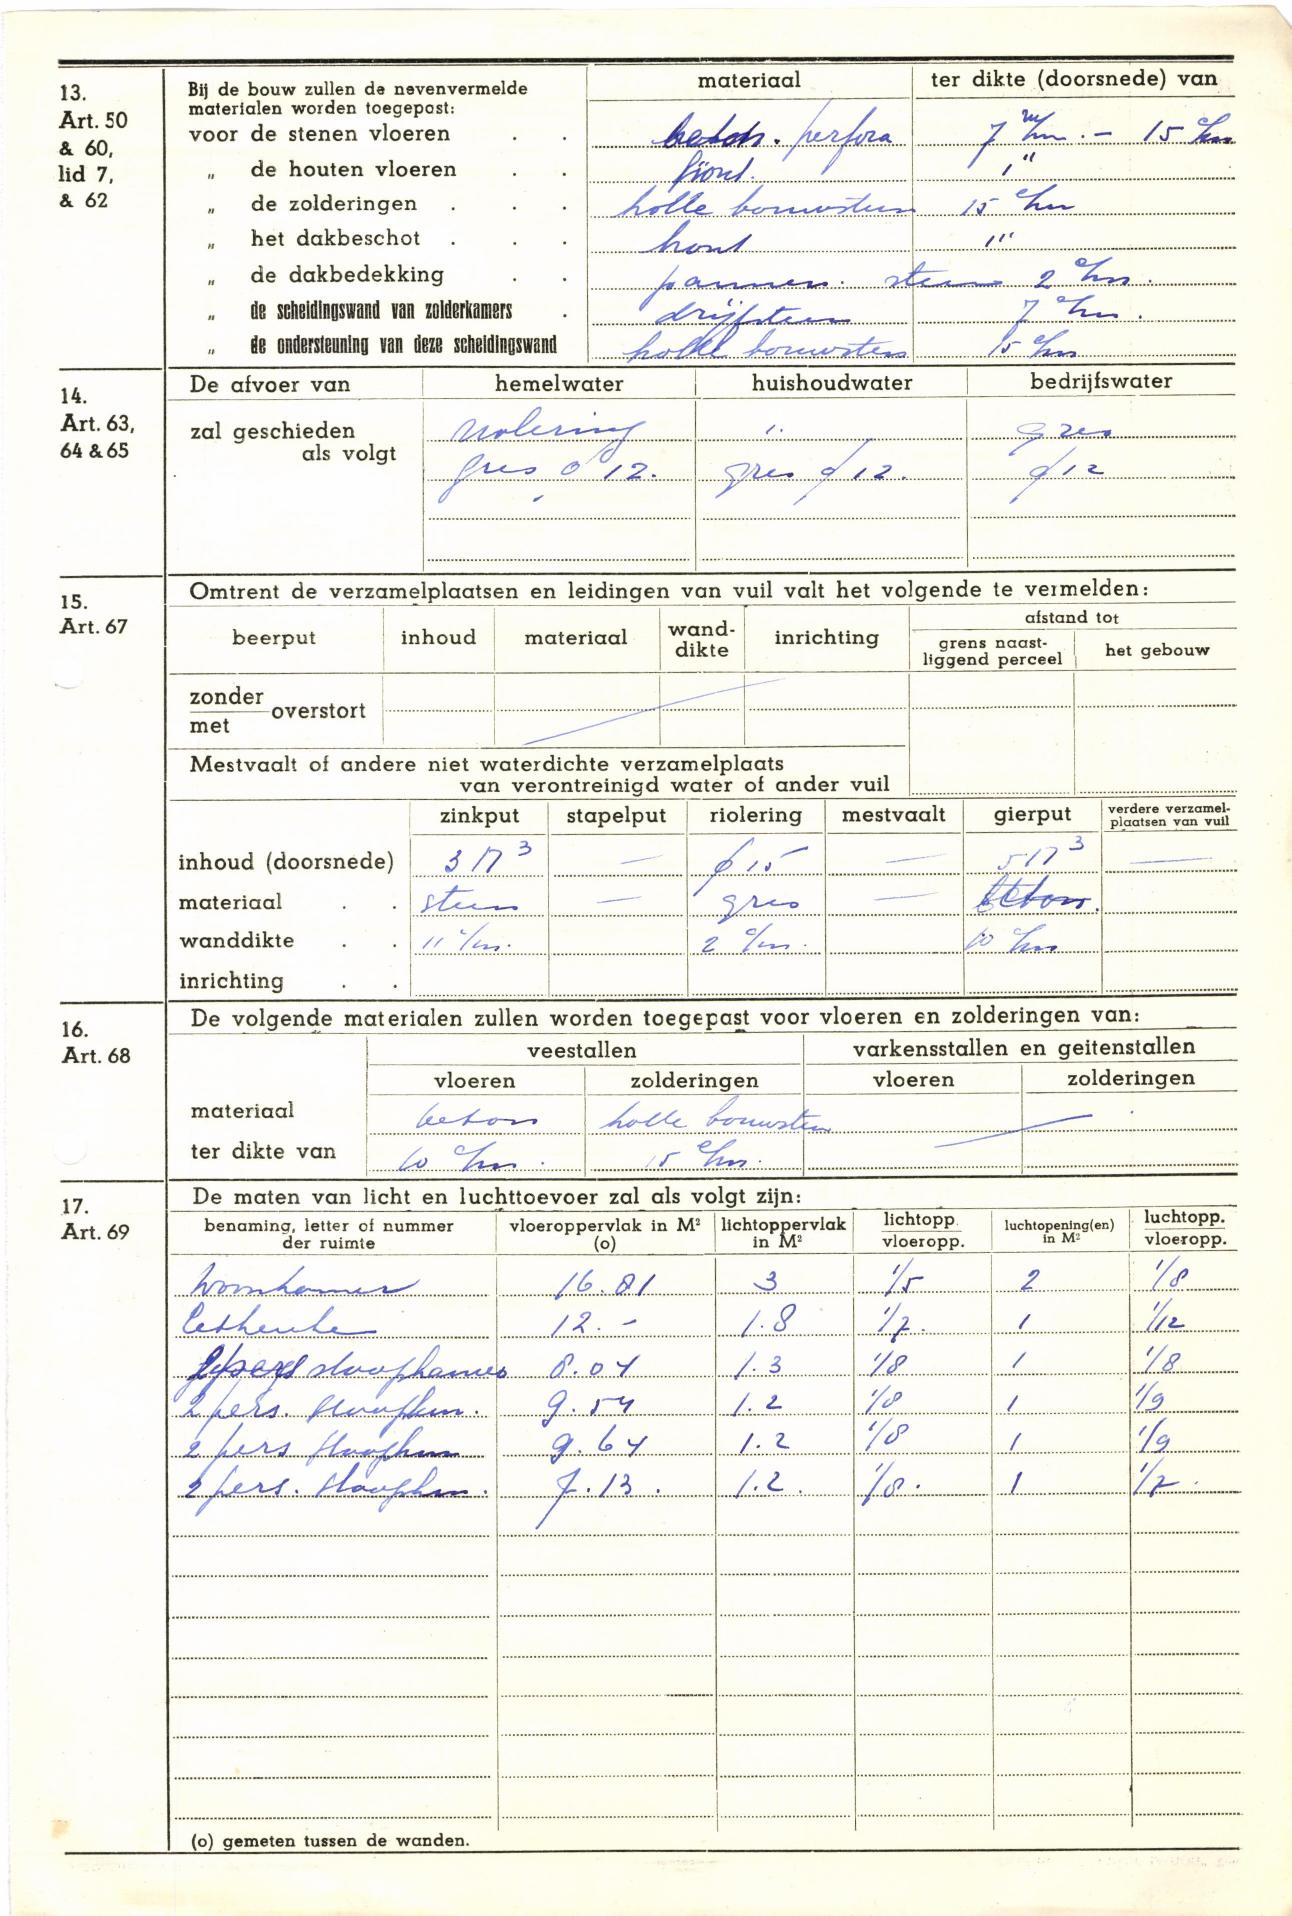 13.
Art. 50
& 60,
lid 7,
& 62
Bij de bouw zullen de nevenvermelde
materialen worden toegepast:
materiaal
ter dikte (doorsnede) van
voor de stenen vloeren . . beton. perfora 7 c/m. - 15 c/m
„ de houten vloeren . . hout. 1"
„ de zolderingen . . . holle bouwsteen 15 c/m
„ het dakbeschot . . . hout 1"
„ de dakbedekking . . pannen. steen 2 c/m.
„ de scheidingswand van zolderkamers . drijfsteen 7 c/m.
„ de ondersteuning van deze scheidingswand holle bouwsteen 15 c/m
14.
Art. 63,
64 & 65
De afvoer van hemelwater huishoudwater bedrijfswater
zal geschieden riolering ". gres
als volgt gres ø 12. gres ø 12. ø 12
15.
Art. 67
Omtrent de verzamelplaatsen en leidingen van vuil valt het volgende te vermelden:
beerput inhoud materiaal wand-
dikte inrichting afstand tot
grens naast-
liggend perceel het gebouw
zonder
met overstort
Mestvaalt of andere niet waterdichte verzamelplaats
van verontreinigd water of ander vuil
zinkput stapelput riolering mestvaalt gierput verdere verzamel-
plaatsen van vuil
inhoud (doorsnede) 3 M³ — ø 15 — 5 M³ —
materiaal . . steen — gres — beton.
wanddikte . . 11 c/m. 2 c/m. 10 c/m
inrichting . .
16.
Art. 68
De volgende materialen zullen worden toegepast voor vloeren en zolderingen van:
veestallen varkensstallen en geitenstallen
vloeren zolderingen vloeren zolderingen
materiaal beton holle bouwsteen
ter dikte van 10 c/m. 15 c/m.
17.
Art. 69
De maten van licht en luchttoevoer zal als volgt zijn:
benaming, letter of nummer
der ruimte
vloeroppervlak in M²
(o)
lichtoppervlak
in M²
lichtopp.
vloeropp.
luchtopening(en)
in M²
luchtopp.
vloeropp.
Woonkamer 16.81 3 1/5 2 1/8
Eetkeuke 12.- 1.8 1/7. 1 1/12
slaapkamer 8.04 1.3 1/8 1 1/8
2 pers. slaapkm. 9.54 1.2 1/8 1 1/9
2 pers slaapkm 9.64 1.2 1/8 1 1/9
2 pers. slaapkm. 7.13. 1.2. 1/8. 1 1/7.
(o) gemeten tussen de wanden.